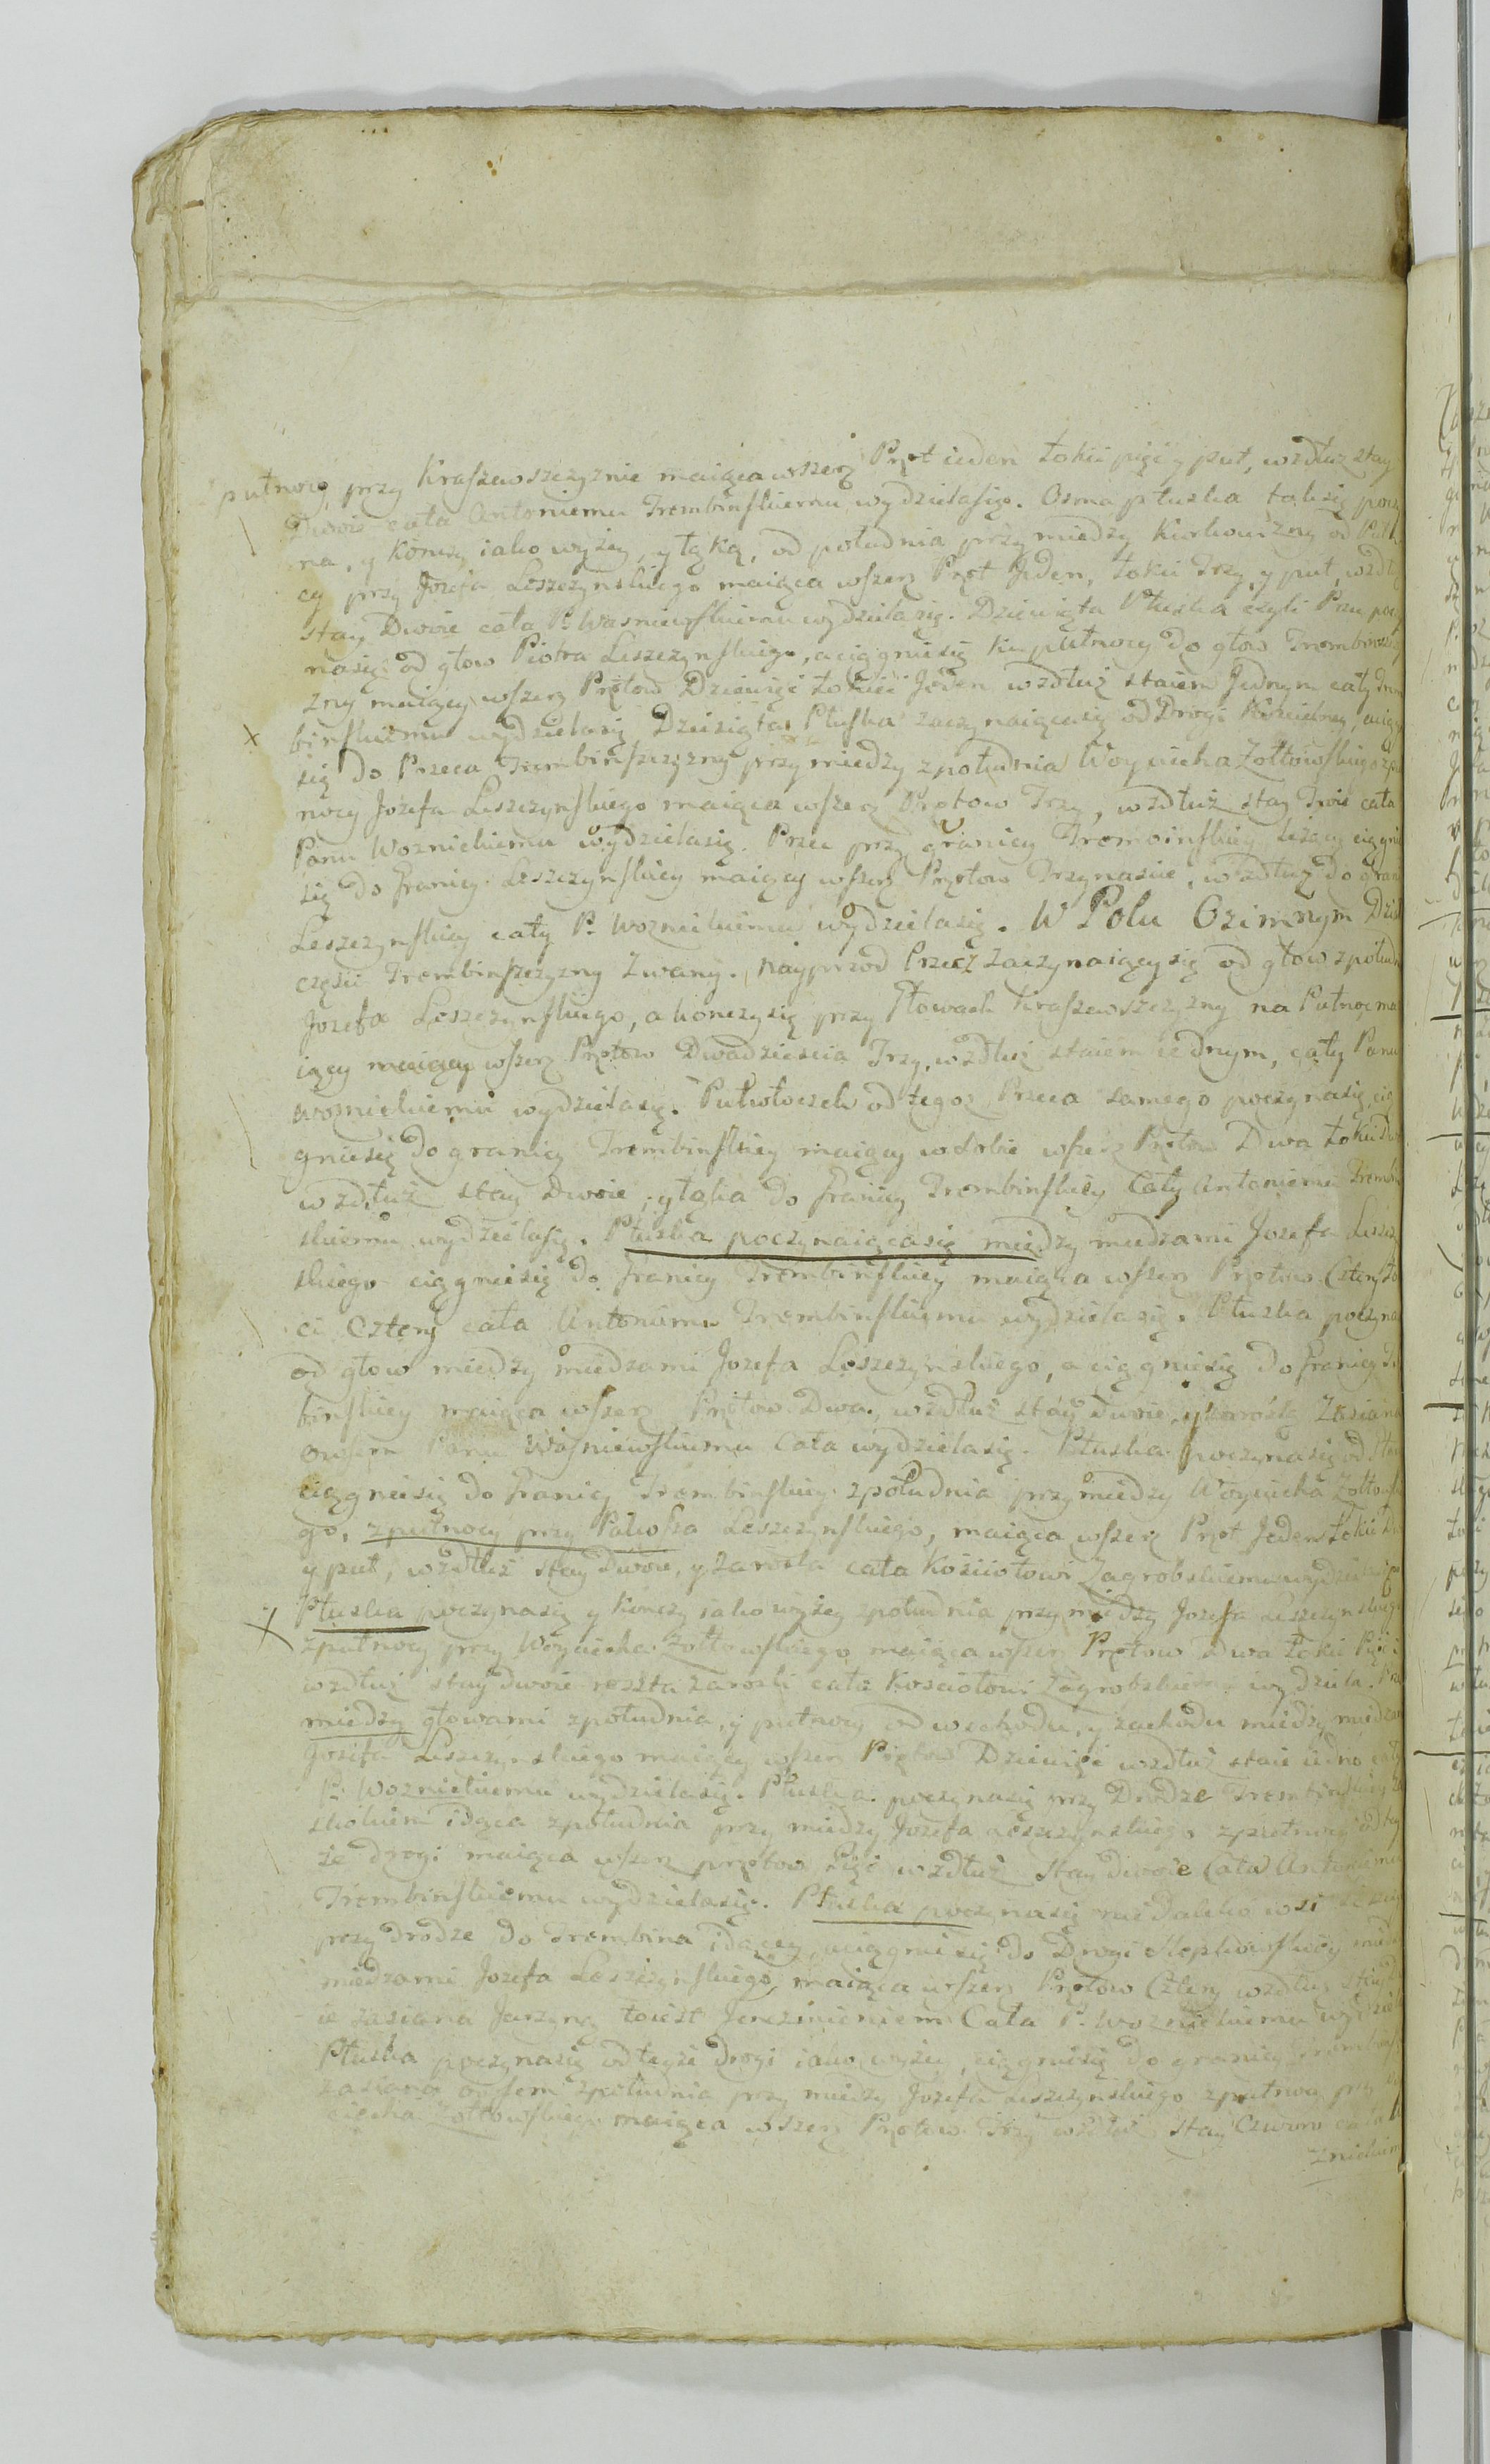 putnocy przy Kraszewszczyznie maiąca wszerz Pręt ieden łokci pięć y puł, wzdłuż stay
Dwoie cała Antoniemu Trembinskiemu wydzielasię. Osma płuska także pocz
na, y kończy iako wyżey, y łąką, od południa przy miedzy od Puł
cy przy Jozefa Leszczynskiego maiąca wszerz Pręt Jeden, łokci Trzy y puł, wzdł
stay Dwoie cała P. Wasniewskiemu wydzielasię. Dziewięta Płuska czyli Przec pocz
nasię od głow Piotra Leszczynskiego, aciągniesię ku putnocy do głow Trembinszcz
zny maiący wszerz Prętow Dziewięć łokieć Jeden wzdłuż staiem Jednym cały Trem
binskiemu wydzielasię Dziesięta Płuska zaczynaiącasię od Drogi Kościelney, aciąg
się do Przeca Trembinszczyzny przy miedzy zpołudnia Woyciecha Zołtowskiego zpu
nocy Jozefa Leszczynskiego maiąca wszerz Prętow Trzy, wzdłuż stay Troie cała
Panu Woznickiemu wydzielasię. Przec przy granicy Trembinskiey leżący ciągnie
się do Granicy Leszczynskiey maiący wszerz Prętow Trzynascie, wzdłuż do gran
Leszczynskiey cały P. Woznickiemu wydzielasię. W Polu Ozimnym Dział
części Trembinszczyzny Zwany. Nayprzod Przec Zaczynaiącysię od głow zpołud
Jozefa Leszczynskiego, a konczysię przy Głowach Kraszewszczyzny na Putnoc ma
iący maiący wszerz Prętow Dwadziescia Trzy, wzdłuż staiem iednym, cały Panu
Woznickiemu wydzielasię. Pułwłoczek od tegoz Przeca samego poczynasię, cią
gniesię do granicy Trembinskiey maiący wsobie wszerz Prętow Dwa łokci Dwa
wzdłuż stay Dwoie, y łąka do Granicy Trembinskiey Cały Antoniemu Trembin
skiemu wydzielasię. Płuska poczynaiącasię między miedzami Jozefa Leszczy
skiego ciągniesię do Granicy Trembinskiey maiąca wszerz Prętow Cztery łok
ci Cztery cała Antoniemu Trembinskiemu wydzielasię. Płuska poczyna
od głow między miedzami Jozefa Leszczynskiego, a ciągniesię do Granicy Tr
binskiey maiąca wszerz Prętow Dwa, wzdłuż stay Dwoie, y zarosla Zasiana
owsem Panu Wasniewskiemu Cała wydzielasię. Płuska poczynasię od
ciągniesię do Granicy Trembinskiey zpołudnia przy miedzy Woyciecha Zołtowski
go, zputnocy przy Leszczynskiego, maiąca wszerz Pręt Jeden łokci
y puł, wzdłuż stay Dwoie, y Zarosla cała Kościołowi Zagrobskiemu wydzielasię
Płuska poczynasię y kończy iako wyżey zpołudnia przy miedzy Jozefa Leszczynskiego
zputnocy przy Woyciecha Zołtowskiego maiąca wszerz Prętow Dwa łokci Pięć
wzdłuż stay dwoie reszta zarosli cała Kosciołowi Zagrobskiemu wydziela.
między głowami zpołudnia, y putnocy od wschodu, y zachodu między miedzami
Jozefa Leszczynskiego maiący wszerz Prętow Dziewięć wzdłuż staie iedno cały
P. Woznickiemu wydzielasię. Płuska poczynasię przy Drodze Trembinskiey
skokiem idąca zpołudnia przy miedzy Jozefa Leszczynskiego zputnocy od tey
że drogi maiąca wszerz prętow Pięć wzdłuż stay dwoie Cała Antoniemu
Trembinskiemu wydzielasię. Płuska poczynasię niedaleko wsi
przy drodze do Trembina idącey, aciągniesię do Drogi między
miedzami Jozefa Leszczynskiego, maiąca wszerz Prętow Cztery wzdłuż stay
ie zasiana Jarzyną toiest Jęczmieniem Cała P. Woznickiemu wydziel
Płuska poczynasię od teyże drogi iako wyżey, ciągniesię do granicy Trembinsk
zasiana owsem zpołudnia przy miedzy Jozefa Leszczynskiego zputnocy przy
ciecha Zołtowskiego maiąca wszerz Prętow Trzy wzdłuż stay Czworo cała
znickiem